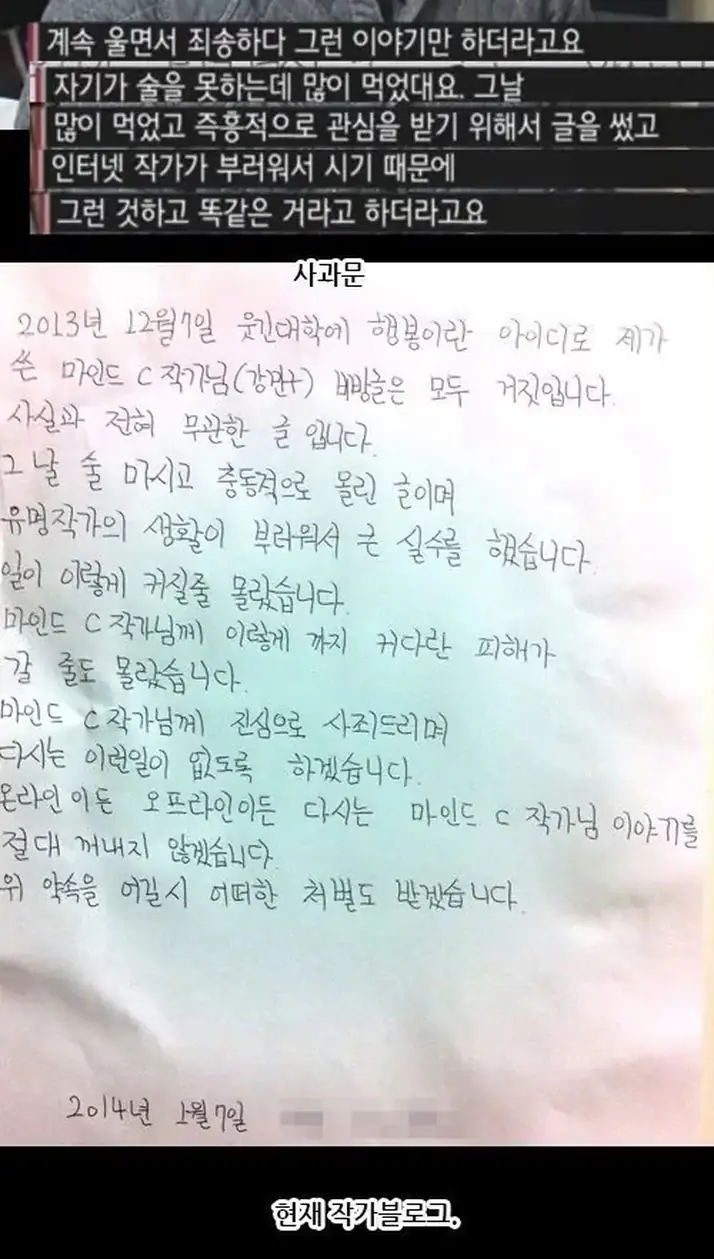 계속 울면서 죄송하다 그런 이야기만 하더라고요
자기가 술을 못하는데 많이 먹었대요. 그날
많이 먹었고 즉흥적으로 관심을 받기 위해서 글을 썼고
인터넷 작가가 부러워서 시기 때문에
그런 것하고 똑같은 거라고 하더라고요
사과문
2013년 12월7일 웃긴대학에 행봉이란 아이디로 제가
쓴 마인드 C 작가님(강민구) 비방글은 모두 거짓입니다.
사실과 전혀 무관한 글 입니다.
그날 술 마시고 충동적으로 올린 글이며
유명작가의 생활이 부러워서 큰 실수를 했습니다.
일이 이렇게 커질줄 몰랐습니다.
마인드 C 작가님께 이렇게 까지 커다란 피해가
갈 줄도 몰랐습니다.
마인드 C 작가님께 진심으로 사죄드리며
다시는 이런일이 없도록 하겠습니다.
온라인이든 오프라인이든 다시는 마인드 C 작가님 이야기를
절대 꺼내지 않겠습니다.
위 약속을 어길시 어떠한 처벌도 받겠습니다.
2014년 1월 7일
현재 작가블로그.